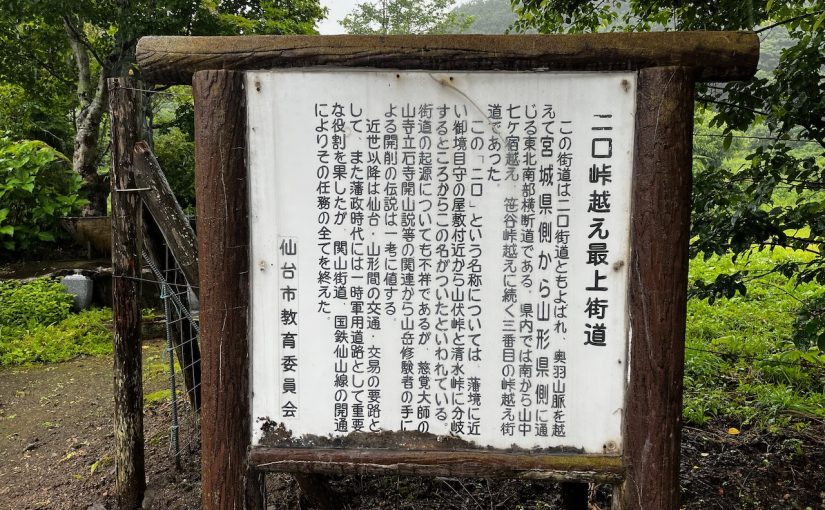 二口峠越え最上街道
この街道は二口街道ともよばれ、奥羽山脈を越
えて宮城県側から山形県側に通
じる東北南部横断道である。県内では南から山中
七ヶ宿越え、笹谷峠越えに続く三番目の峠越え街
道であつた。
この「二口」という名称については、藩境に近
い御境目守の屋敷付近から山伏峠と清水峠に分岐
するところからこの名がついたといわれている。
街道の起源についても不祥であるが、慈覚大師の
山寺立石寺開山説等の関連から山岳修験者の手に
よる開削の伝説は一考に値する。
近世以降は仙台、山形間の交通・交易の要路と
して、また藩政時代には一時軍用道路として重要
な役割を果したが、関山街道、国鉄仙山線の開通
によりその任務の全てを終えた。
仙台市教育委員会